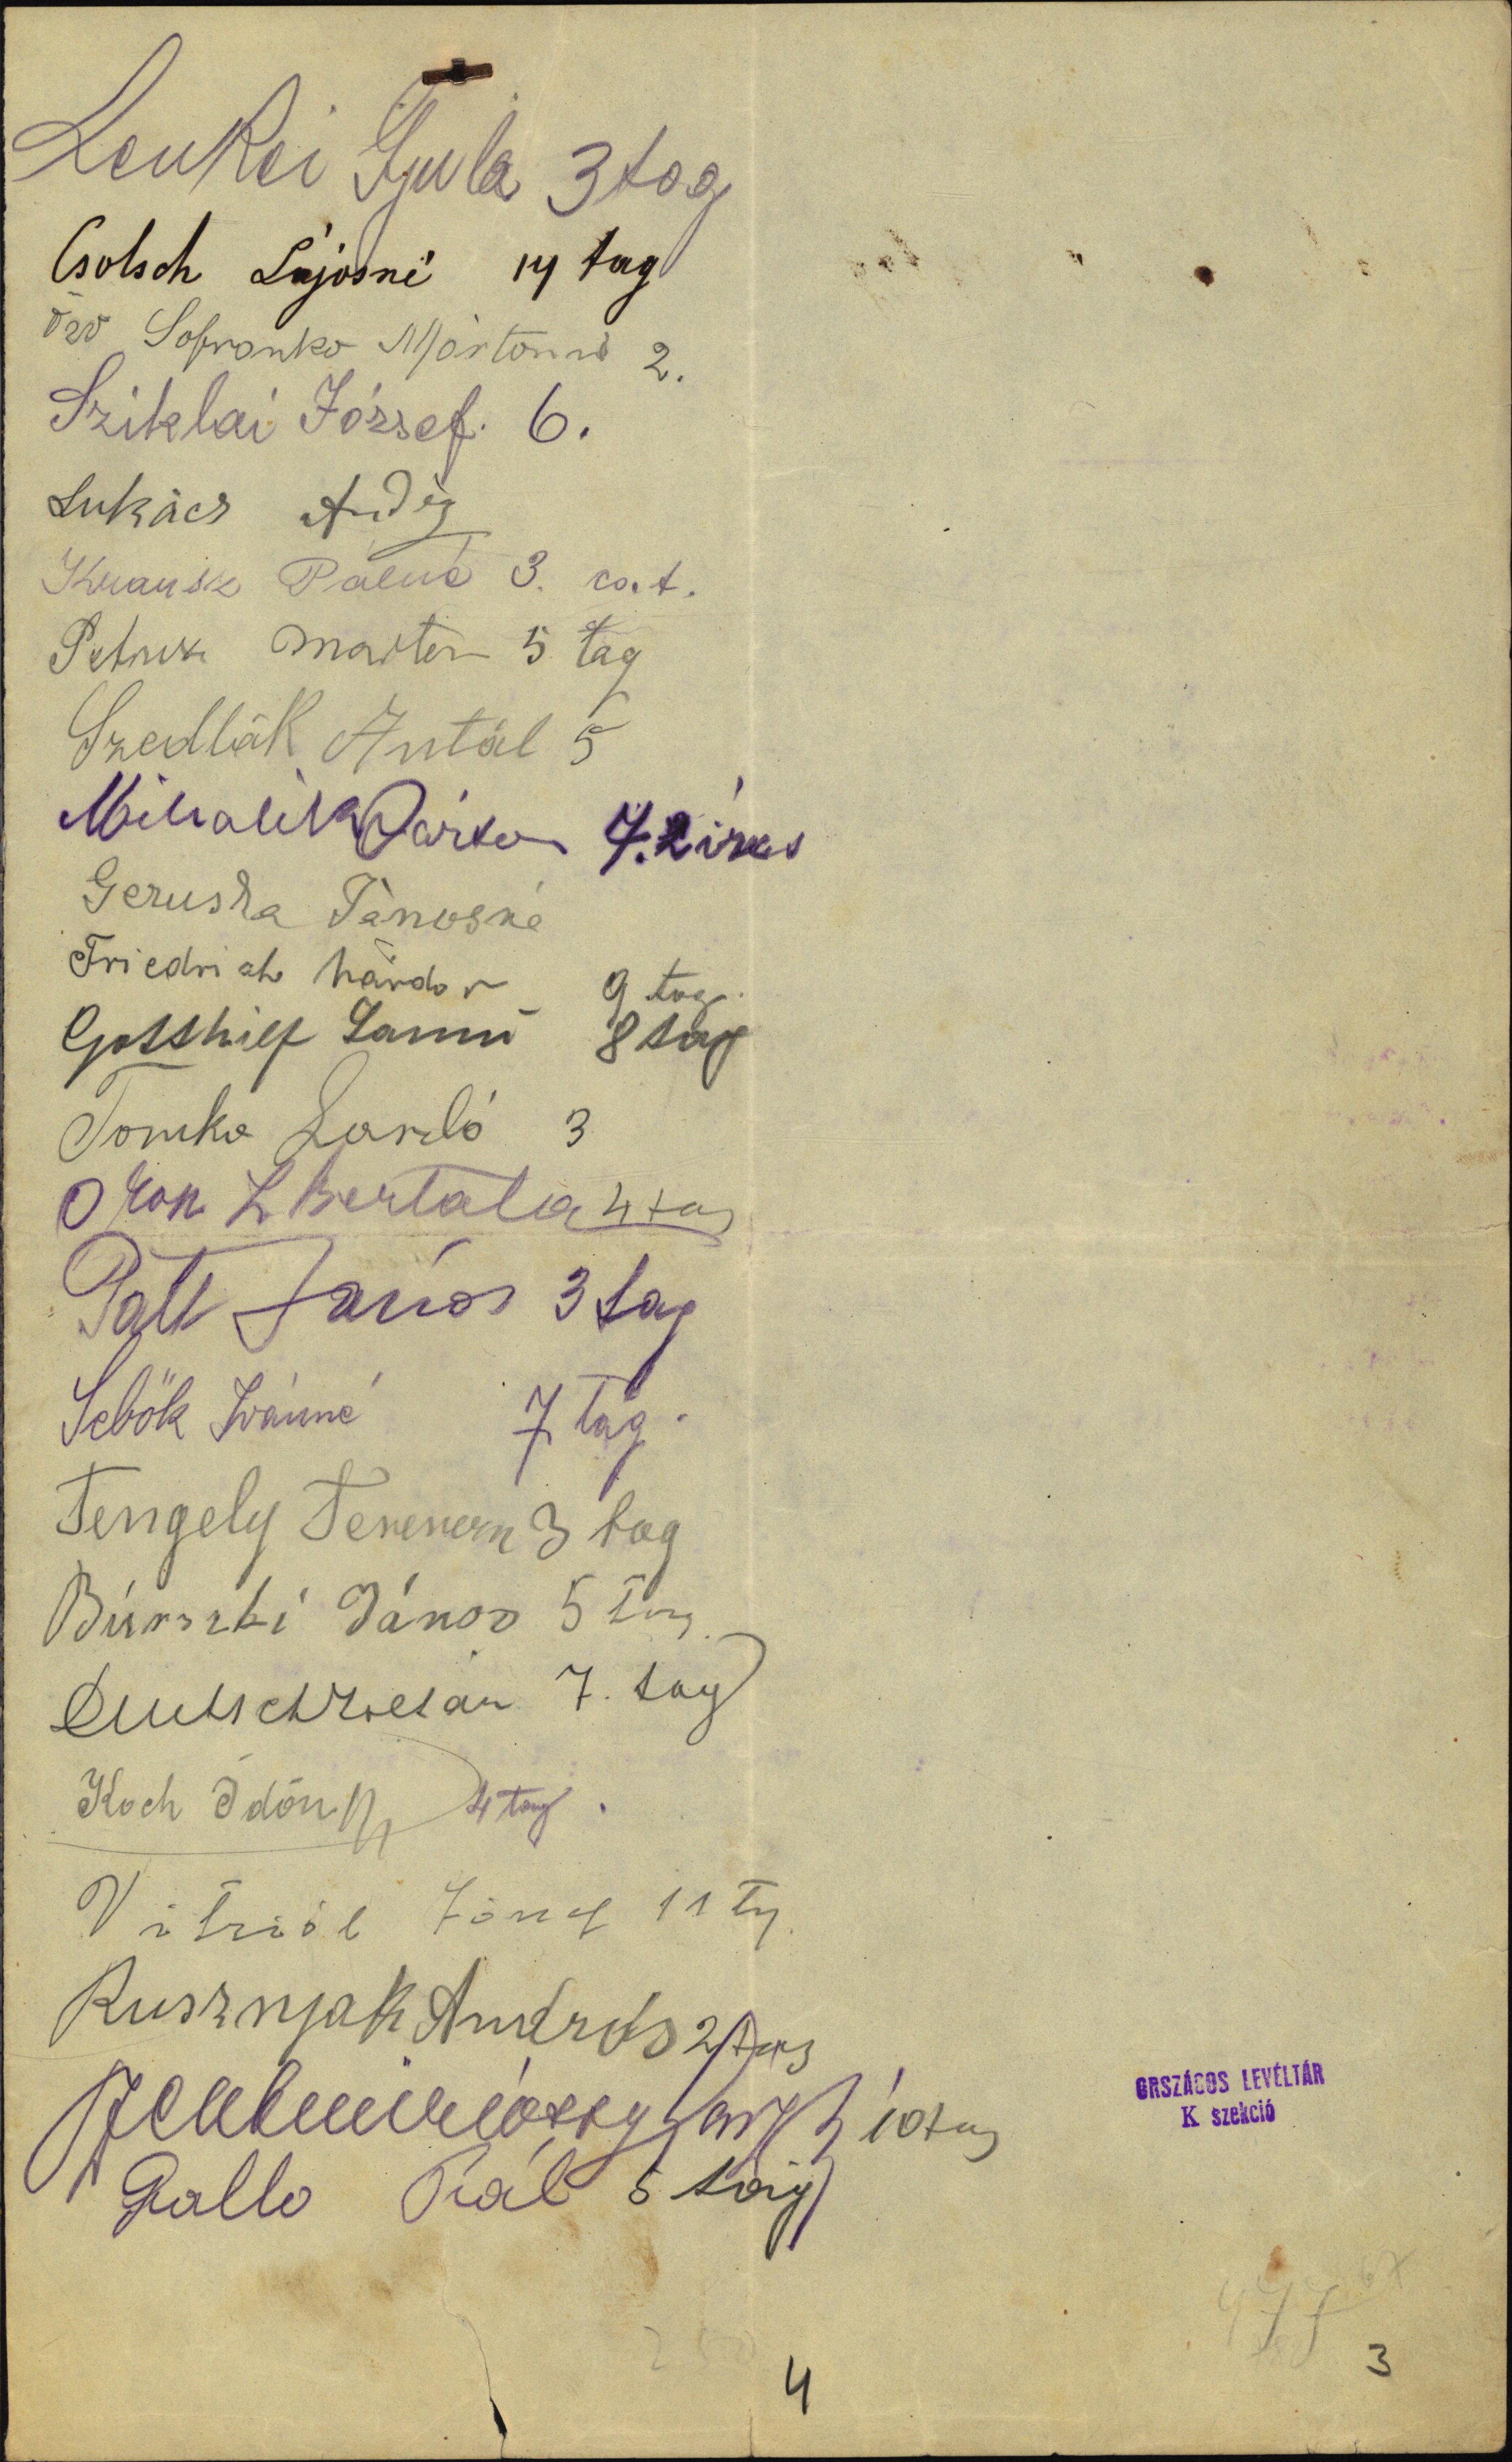 Lenkei Gyula 3 tag
Csolsch Lajosné 14 tag
özv Sofranko Mártonné 2.
Sziklai József. 6.
Lukács
Krausz Pálné 3. cs. t.
Petrusz Marton 5 tag
Szedlák Antál 5
Mihalik Márton 7.
Geruska Jánosné
Friedrich Nándor 9 tag.
Gotthilf 8 tag
Tomko Laszló 3
Bertala 4 tag
Patt János 3 tag
Sebők Ivánné 7 tag.
Tengely Ferencz 3 tag
Búrszki János 5 tag
Deutsch Zoltán 7. tag
Koch Ödön 4 tag.
Vitriól József 11 tg.
Rusznyak András 2 tag
10 tag
Gallo Pál 5 tag
ORSZÁGOS LEVÉLTÁR
K szekció
4
3